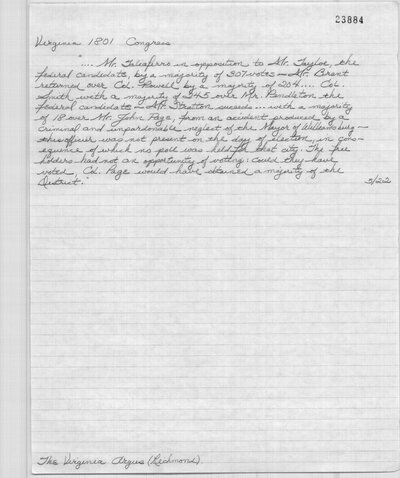 23884
Virginia 1801 Congress
".... Mr. Taliaferro in opposition to Mr. Taylor, the
federal candidate, by a majority of 307 votes — Mr. Brent
returned over Col. Powell by a majority of 204.... Col.
Smith with a majority of 345 over Mr. Pendleton the
federal candidate — Mr. Stratton succeeds... with a majority
of 18 over Mr. John Page, from an accident produced by a
criminal and unpardonable neglect of the Mayor of Williamsburg —
this officer was not present on the day of election, in cons-
equence of which no poll was held for that city. The free
holders had not an opportunity of voting: could they have
voted, Col. Page would have obtained a majority of the
District."
5/22
The Virginia Argus (Richmond).